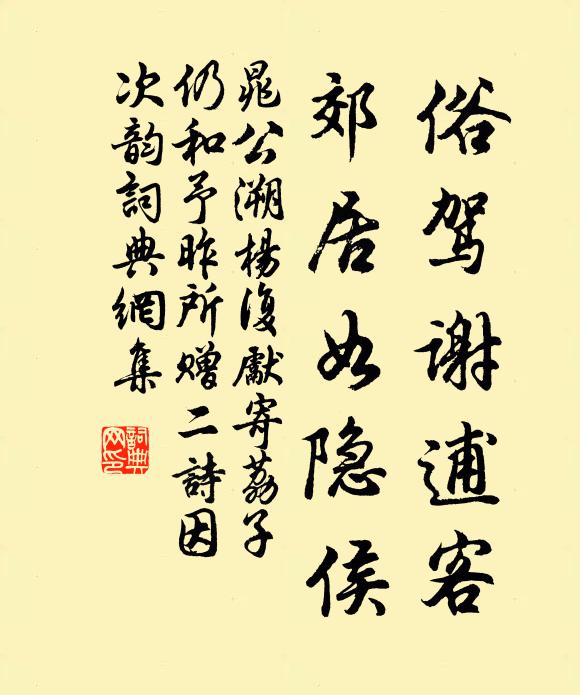 俗驾谢逋客
郊居如隐侯
晁公溯楊復獻寄荔子
仍和予昨所赠二詩因
次韵詞典網集
詞典
网印